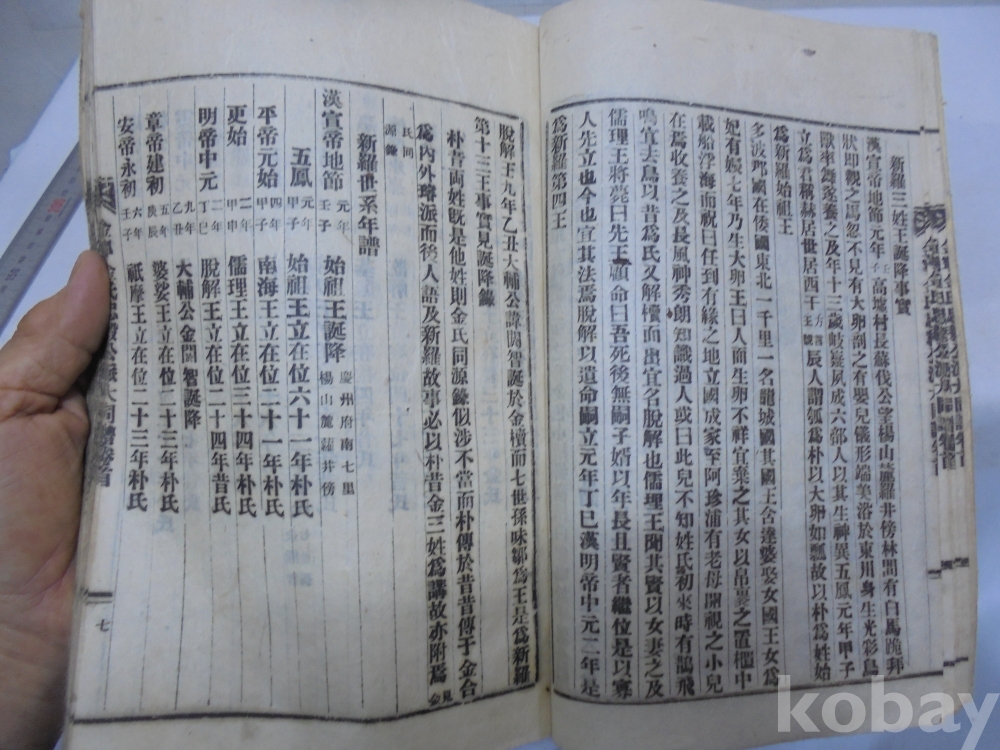 新羅三姓王誕降事實
漢宣帝地節元年壬子高墟村長蘇伐公望楊山蘿井傍林間有白馬跪拜
狀即觀之馬忽不見有大卵剖之有嬰兒儀形端美浴於東川身生光彩鳥
獸率舞遂養之及年十三歲岐嶷夙成六部人以其生神異五鳳元年甲子
立爲君稱赫居世居西干方言王號辰人謂瓠爲朴以大卵如瓢故以朴爲姓始
爲新羅始祖王
多波那國在倭國東北一千里一名龍城國其國王含達婆娶女國王女爲
妃有娠七年乃生大卵王曰人而生卵不祥宜棄之其女以帛裹之置櫃中
載船浮海而祝曰任到有緣之地立國成家至阿珍浦有老母開視之小兒
在焉收養之及長風神秀朗知識過人或曰此兒不知姓氏初來時有鵲飛
鳴宜去鳥以昔爲氏又解櫝而出宜名脫解也儒理王聞其賢以女妻之及
儒理王將薨曰先王顧命曰吾死後無嗣子婿以年長且賢者繼位是以寡
人先立也今也宜其法焉脫解以遺命嗣立元年丁巳漢明帝中元二年是
爲新羅第四王
脫解王九年乙丑大輔公諱閼智誕於金櫝而七世孫味鄒爲王是爲新羅
第十三王事實見誕降錄
朴昔兩姓旣是他姓則金氏同源錄似涉不當而朴傳於昔昔傳于金合
爲內外璿派而後人語及新羅故事必以朴昔金三姓爲講故亦附焉
氏同源錄
新羅世系年譜
漢宣帝地節元年壬子 始祖王誕降 慶州府南七里楊山麓蘿井傍
五鳳元年甲子 始祖王立在位六十一年朴氏
平帝元始四年甲子 南海王立在位二十一年朴氏
更始二年甲申 儒理王立在位三十四年朴氏
明帝中元二年丁巳 脫解王立在位二十四年昔氏
九年乙丑 大輔公金閼智誕降
章帝建初五年庚辰 婆娑王立在位三十三年朴氏
安帝永初六年壬子 祇摩王立在位二十三年朴氏
七
kobay